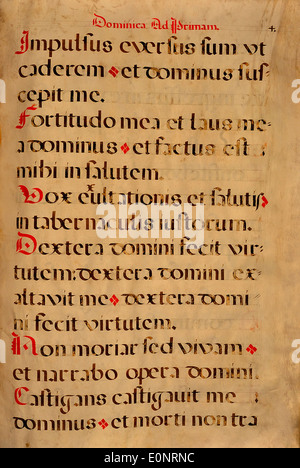 Dominica. Ad Primam. 4.
Impulsus eversus sum vt
caderem et dominus sus-
cepit me.
Fortitudo mea et laus me-
a dominus et factus est
mihi in salutem.
Vox exultationis et salutis
in tabernaculis iustorum.
Dextera domini fecit vir-
tutem: dextera domini ex-
altavit me dextera domi
ni fecit virtutem.
Non moriar sed vivam
et narrabo opera domini.
Castigans castigauit me
dominus et morti non tra
alamy
Image ID: E0NRNC
www.alamy.com